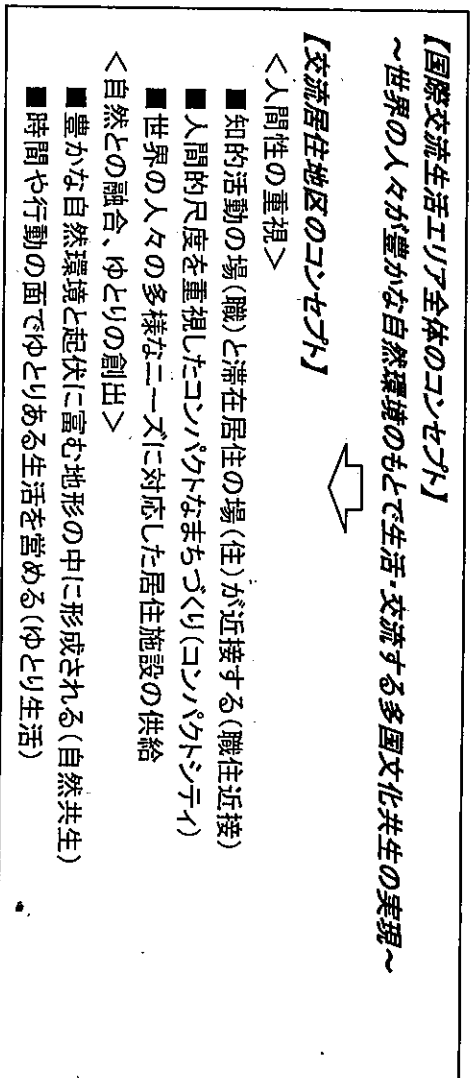 【国際交流生活エリア全体のコンセプト】
～世界の人々が豊かな自然環境のもとで生活・交流する多国文化共生の実現～
【交流居住地区のコンセプト】
＜人間性の重視＞
■知的活動の場(職)と滞在居住の場(住)が近接する(職住近接)
■人間的尺度を重視したコンパクトなまちづくり(コンパクトシティ)
■世界の人々の多様なニーズに対応した居住施設の供給
＜自然との融合、ゆとりの創出＞
■豊かな自然環境と起伏に富む地形の中に形成される(自然共生)
■時間や行動の面でゆとりある生活を営める(ゆとり生活)